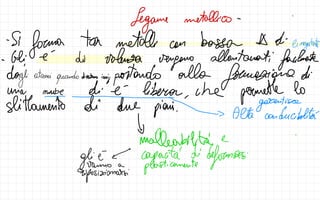 Legame metallico.
- Si forma tra metalli con bassa Δ di
- Gli e⁻ di valenza vengono allontanati facilmente
dagli atomi quando portando alla formazione di
una nube di e⁻ libera, che permette lo
slittamento di due piani.
garantisce
Alta conducibilità
malleabilità e
capacità di deformarsi
plasticamente
gli e⁻
vanno a
riposizionarsi